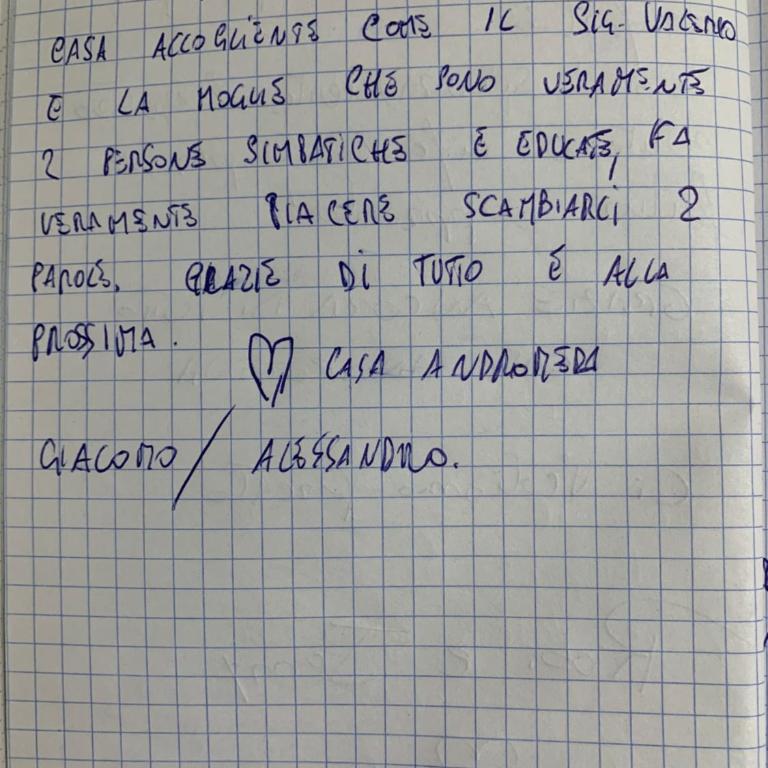 CASA ACCOGLIENTE COME IL SIG. VALERIO
E LA MOGLIE CHE SONO VERAMENTE
2 PERSONE SIMPATICHE E EDUCATE, FA
VERAMENTE PIACERE SCAMBIARCI 2
PAROLE. GRAZIE DI TUTTO E ALLA
PROSSIMA.
CASA ANDROMEDA
GIACOMO / ALESSANDRO.